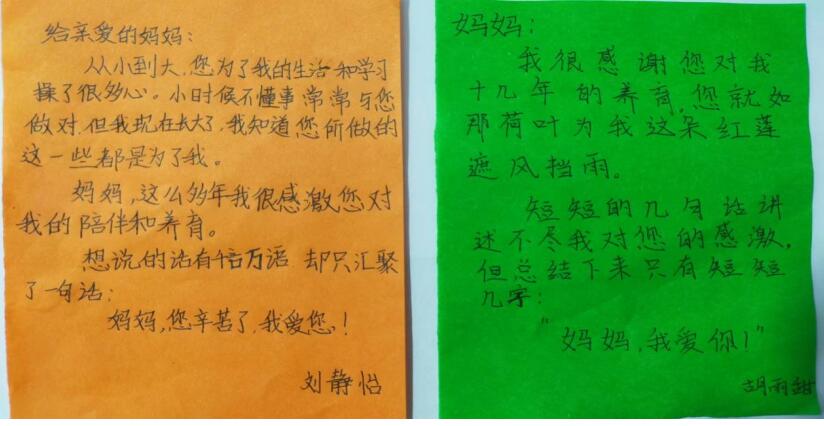 给亲爱的妈妈:
从小到大,您为了我的生活和学习
操了很多心。小时候不懂事常常与您
做对,但我现在长大了,我知道您所做的
这一些都是为了我。
妈妈,这么多年我很感激您对
我的陪伴和养育。
想说的话有千言万语 却只汇聚
了一句话:
妈妈,您辛苦了,我爱您!
刘静怡
妈妈:
我很感谢您对我
十几年的养育,您就如
那荷叶为我这朵红莲
遮风挡雨。
短短的几句话讲
述不尽我对您的感激,
但总结下来只有短短
几字:
"妈妈,我爱你!"
胡雨甜